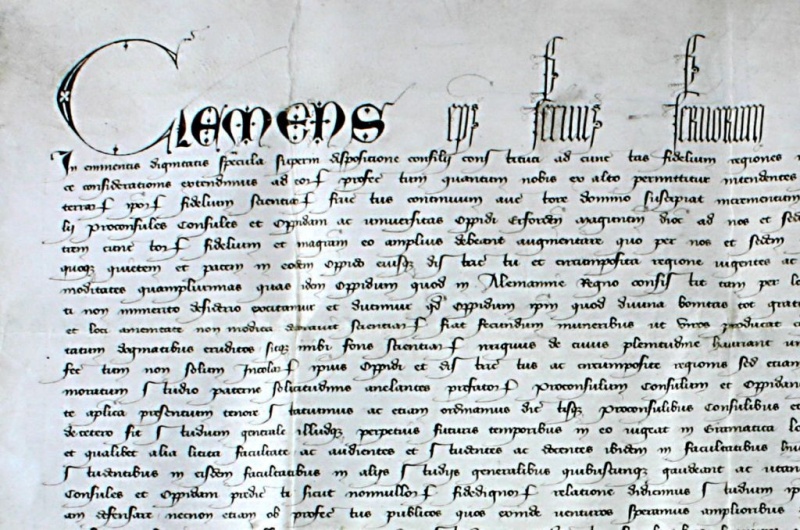 Clemens eps seruus seruorum
In eminentis dignitatis specula superni dispositione consilij constituti ad cunctas fidelium regiones
ac considerationis extendimus ad eorum profectum quantum nobis ex alto permittitur intendentes
fidelium scientiarum sue continuum auctore domino suscipiat incrementum
lij Proconsules Consules et Oppidani ac uniuersitas Oppidi Erforden maguntin dioc ad nos et sedem
fidelium et magnam eo amplius debeant augmentare quo per nos et sedem
quoqz quietem et pacem in eodem Oppido eiusqz districtu et circumposita regione uigentes ac
moditates quamplurimas quas idem Oppidum quod in Alemannie Regno consistit tam per
ti non immerito desiderio excitamur et ducimur qd Oppidum ipm quod diuina bonitas tot
et loci amenitate non modica dotauit scientiarum fiat fecundum muneribus ut uiros producat
tatum dogmatibus eruditos sitqz inibi fons scientiarum irriguus de cuius plenitudine hauriant
fectum non solum Incolarum ipius Oppidi et districtus ac circumposite regionis sed etiam
moratum Studio paterne solicitudinis anelantes prefatorum Proconsulum Consulum et Oppidanorum
te aplica presentium tenore Statuimus ac etiam ordinamus dictisqz Proconsulibus Consulibus et
decetero sit Studium generale illudqz perpetuis futuris temporibus in eo uigeat in Gramatica
et qualibet alia licita facultate ac audientes et Studentes ac docentes ibidem in facultatibus
Studentibus in eisdem facultatibus in alijs Studijs generalibus quibuscunqz gaudeant ac
Consules et Oppidani predicti sicut nonnullorum fidedignorum relatione didicimus Studium
am defensare necnon etiam ob profectus publicos quos exinde uenturos speramus amplioribus